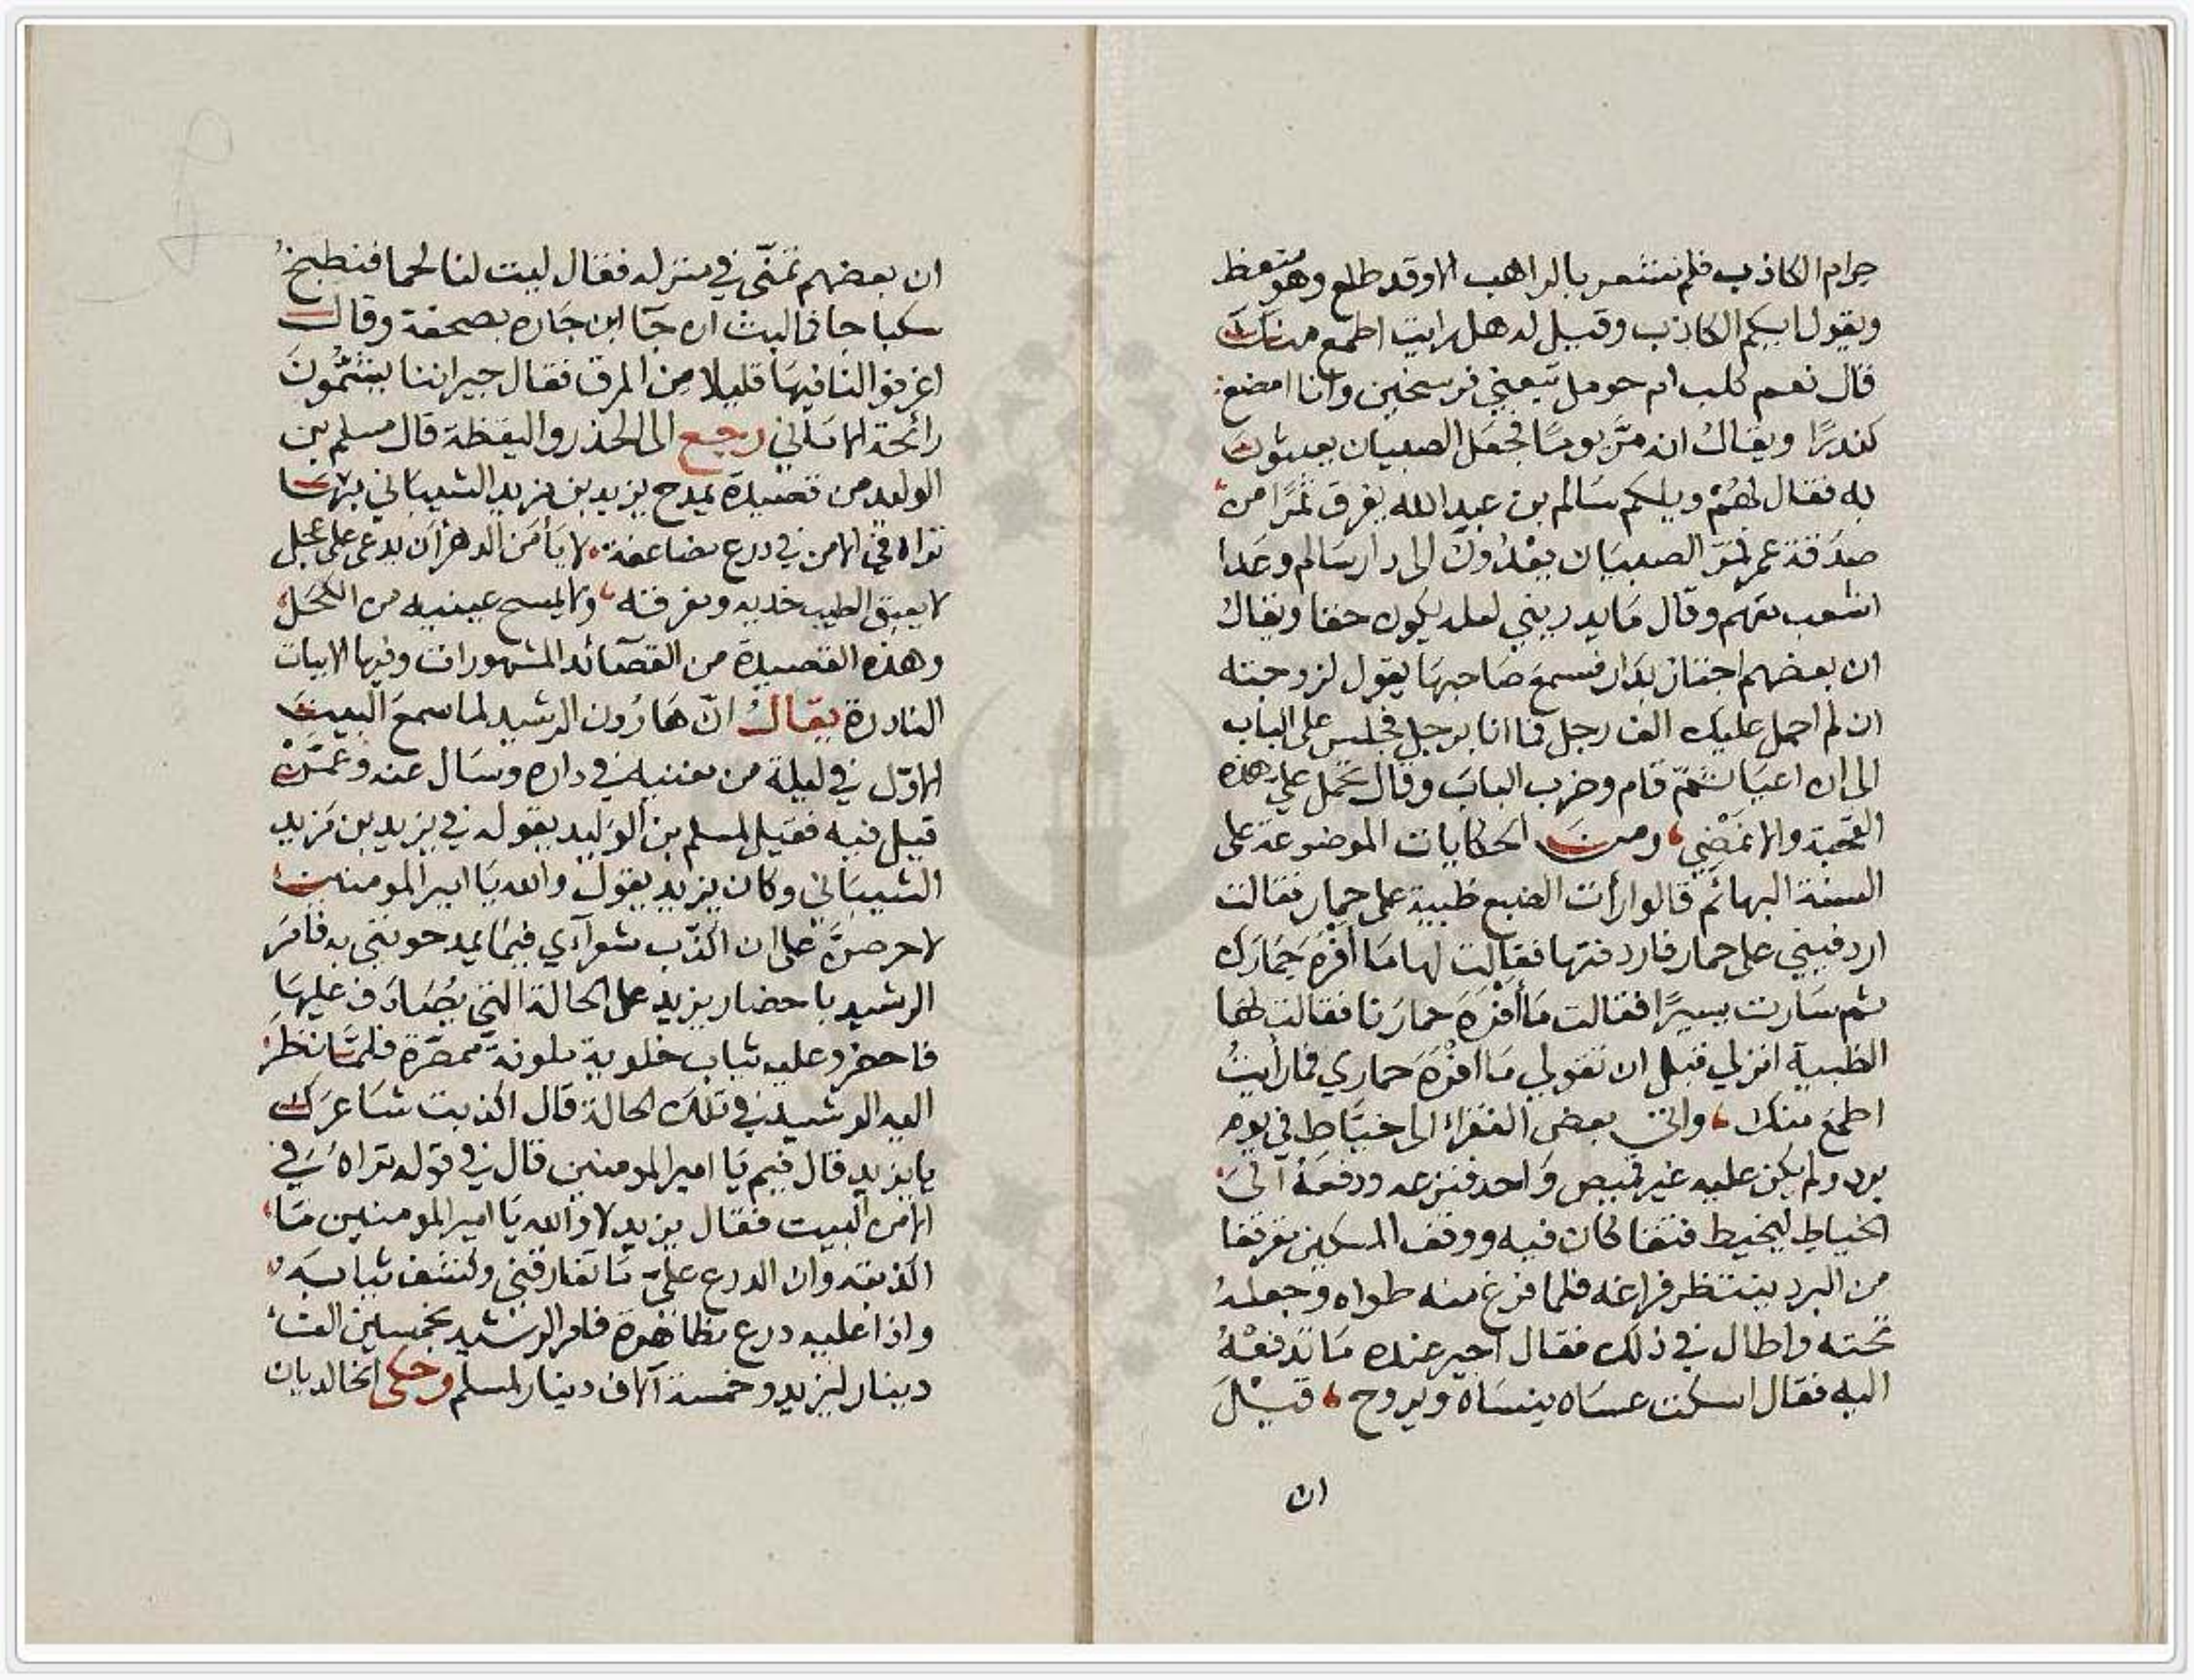 حرام الكاذب فلم نشعر بالراهب الا وقد طلع وهو منعظ
ويقول ايكم الكاذب وقيل له هل رايت اطمع منك
قال نعم كلب ام حومل تبعني فرسخين وانا امضغ
كندرًا ويقال انه مرّ يومًا فجعل الصبيان يعبثون
به فقال لهم ويلكم سالم بن عبد الله يفرق تمرًا من
صدقة عمر فمرّ الصبيان يعدون الى دار سالم وعدا
اشعب معهم وقال ما يدريني لعله يكون حقا ويقال
ان بعضهم اجتاز بدار فسمع صاحبها يقول لزوجته
ان لم احمل عليك الف رجل فما انا برجل فجلس على الباب
الى ان اعيا ثم قام وضرب الباب وقال تحمل على هذه
القحبة والا نمضي ومن الحكايات الموضوعة على
السنة البهائم قالوا رأت الضبع ظبية على حمار فقالت
اردفيني على حمار فاردفتها فقالت لها ما افره حمارك
ثم سارت يسيرًا فقالت ما أفره حمارنا فقالت لها
الظبية انزلي قبل ان تقولي ما افره حماري فما رأيت
اطمع منك واتى بعض الفقراء الى خياط في يوم
برد ولم يكن عليه غير قميص واحد فنزعه ودفعه الى
الخياط ليخيط فتقا كان فيه ووقف المسكين مقرفقا
من البرد ينتظر فراغه فلما فرغ منه طواه وجعله
تحته واطال في ذلك فقال اجير عنده ما تدفعه
اليه فقال اسكت عساه ينساه ويروح قيل
ان
ان بعضهم تمنّى في منزله فقال ليت لنا لحما فنطبخ
سكباجا فما لبث ان جا ابن جاره بصحفة وقال
اغرفوا لنا فيها قليلا من المرق فقال جيراننا يشمّون
رائحة الاماني رجع الى الحذر واليقظة قال مسلم بن
الوليد من قصيدة يمدح يزيد بن مزيد الشيباني بثها
تراه في الامن في درع مضاعفة لا يأمن الدهر أن يدعى على عجل
لا يعبق الطيب خديه ومفرقه ولا يمسح عينيه من الكحل
وهذه القصيدة من القصائد المشهورات وفيها الابيات
النادرة يقال انّ هارون الرشيد لما سمع البيت
الاوّل في ليلة من مغنيه في داره وسال عنه وعمّن
قيل فيه فقيل لمسلم بن الوليد يقوله في يزيد بن مزيد
الشيباني وكان يزيد يقول والله يا امير المومنين
لا حرصنّ على ان اكذّب شعرآءي فيما يمدحونني به فامر
الرشيد باحضار يزيد على الحالة التي يصادف عليها
فاحضر وعليه ثياب خلوية ملونة ممصّرة فلمّا نظر
اليه الرشيد في تلك الحالة قال اكذبت شاعرك
يا يزيد قال فيم يا امير المومنين قال في قوله تراه في
الامن البيت فقال يزيد لا والله يا امير المومنين ما
اكذبته وان الدرع علىّ ما تفارقني وكشف ثيابه
واذا عليه درع مظاهرة فامر الرشيد بخمسين الف
دينار ليزيد وخمسة آلاف دينار لمسلم وحكى الخالديان